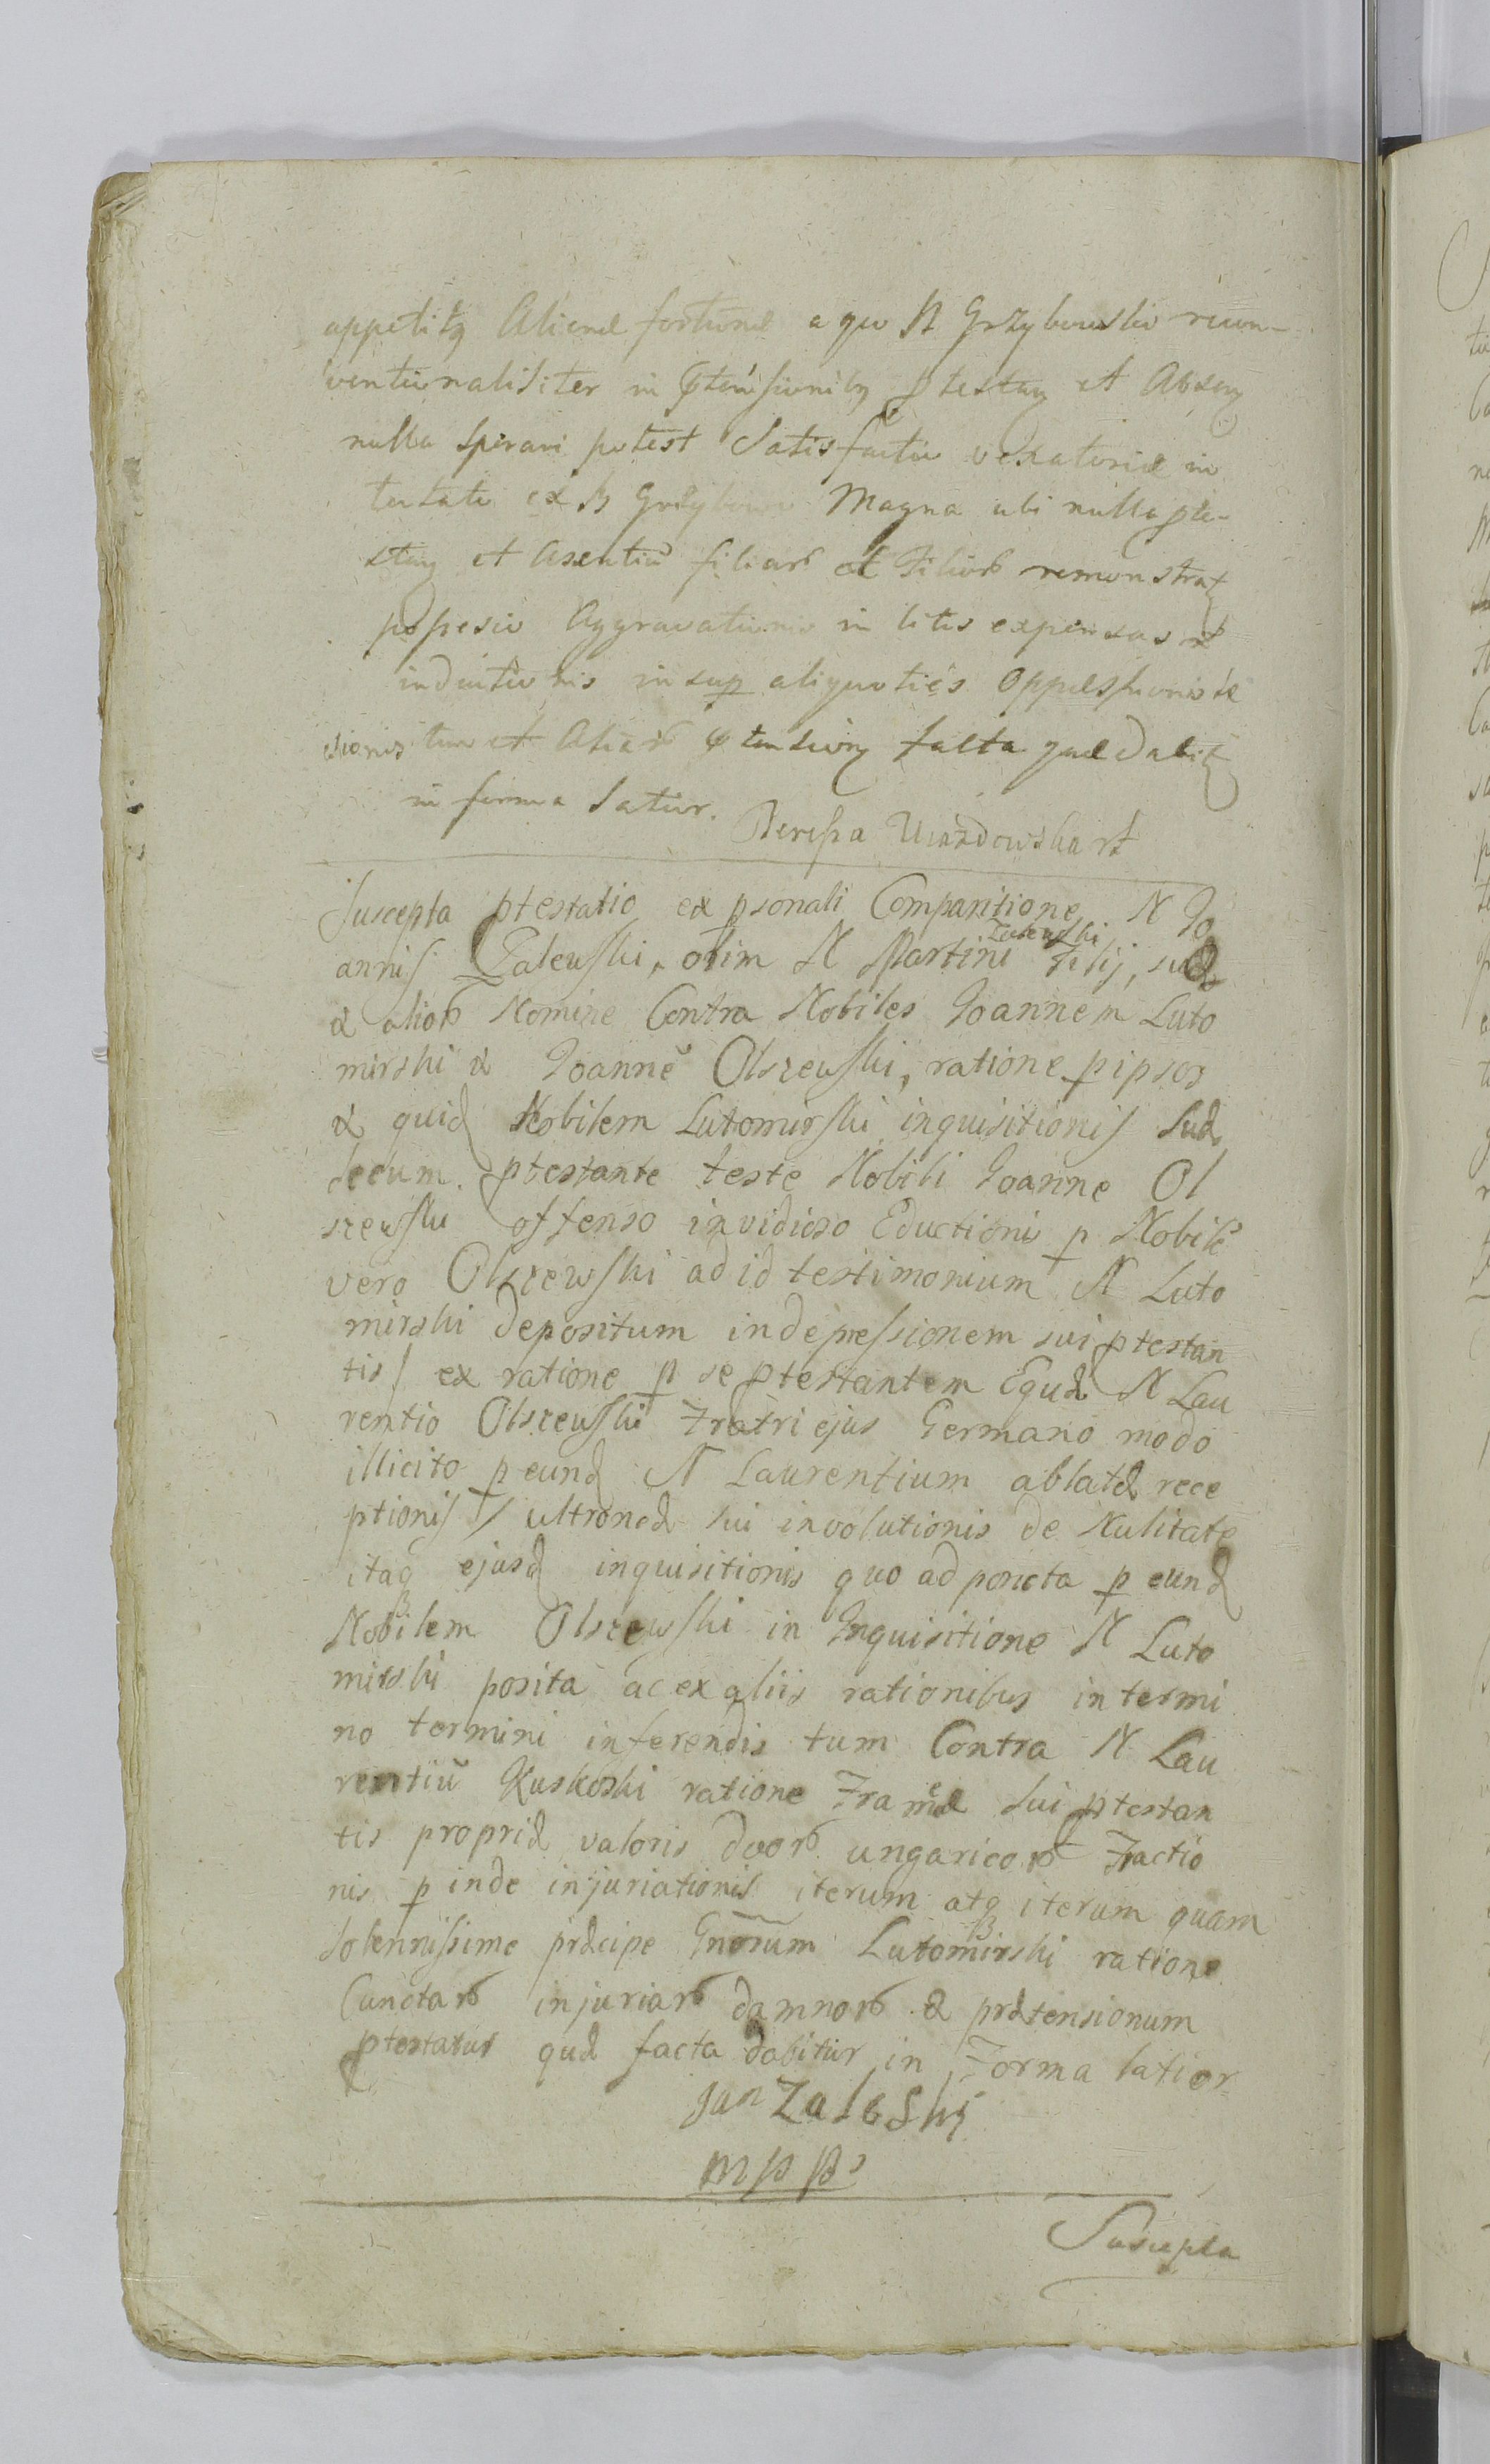 appetitq Alienæ fortunæ a quo N Grzybowski recon-
ventionalisiter in ptensionibq ptestan et Absen
nulla sperari potest Satisfactio vexatoriæ in
tentate ex B Grzybowo Magna ubi nulla pte-
stan et Asentiū filiarū et Filiorū remonstrat
popesio Aggravationis in litis expensas et
inductionis insup aliquoties Oppressionis læ
sionis tum et Aliarū ptensiong facta quæ dabit
in forma Latior.
Teressa Uiazdowska rt
Suscepta ptestatio ex psonali Comparitione N Jo
annis Zalewski, olim N Martini Zalewski Filij, suæ
& aliorū Nomine Contra Nobiles Joannem Luto
mirski & Joannē Olszewski, ratione p ipsos
& quid Nobilem Lutomirski inquisitionis Sud
secum. ptestante teste Nobili Joanne Ol
szewski offenso invidioso Eductioni p Nobilē
vero Olszewski ad id testimonium N Luto
mirski depositum in depressionem sui ptestan
tis ex ratione p se ptestantem Equæ N Lau
rentio Olszewski Fratri ejus Germano modo
illicito p eund N Laurentium ablatæ rece
ptionis ultroneæ sui involutionis de Nulitate
itaq ejusd inquisitionis quo ad poncta p eund
Nobilem Olszewski in Inquisitione N Luto
mirski posita ac ex aliis rationibus in termi
no termini inferendis tum Contra N Lau
rentiū Kuskoski ratione Frameæ sui ptestan
tis propriæ valoris duorū ungaricorū Fractio
nis p inde injuriationis iterum atq iterum quam
Solennissime præcipe Gnorum Lutomirski ratione
Cunctarū injuriarū damnorū & prætensionum
ptestatus quæ facta dabitur in Forma latior
Jan Zaleski
mpps
Suscepta